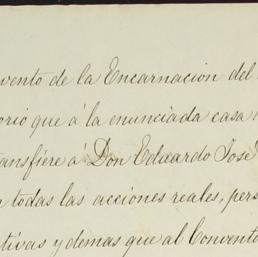 vento de la Encarnacion del
orio que á la enunciada casa
ansfiere á Don Eduardo José
todas las acciones reales, pers
tivas y demas que al Convento